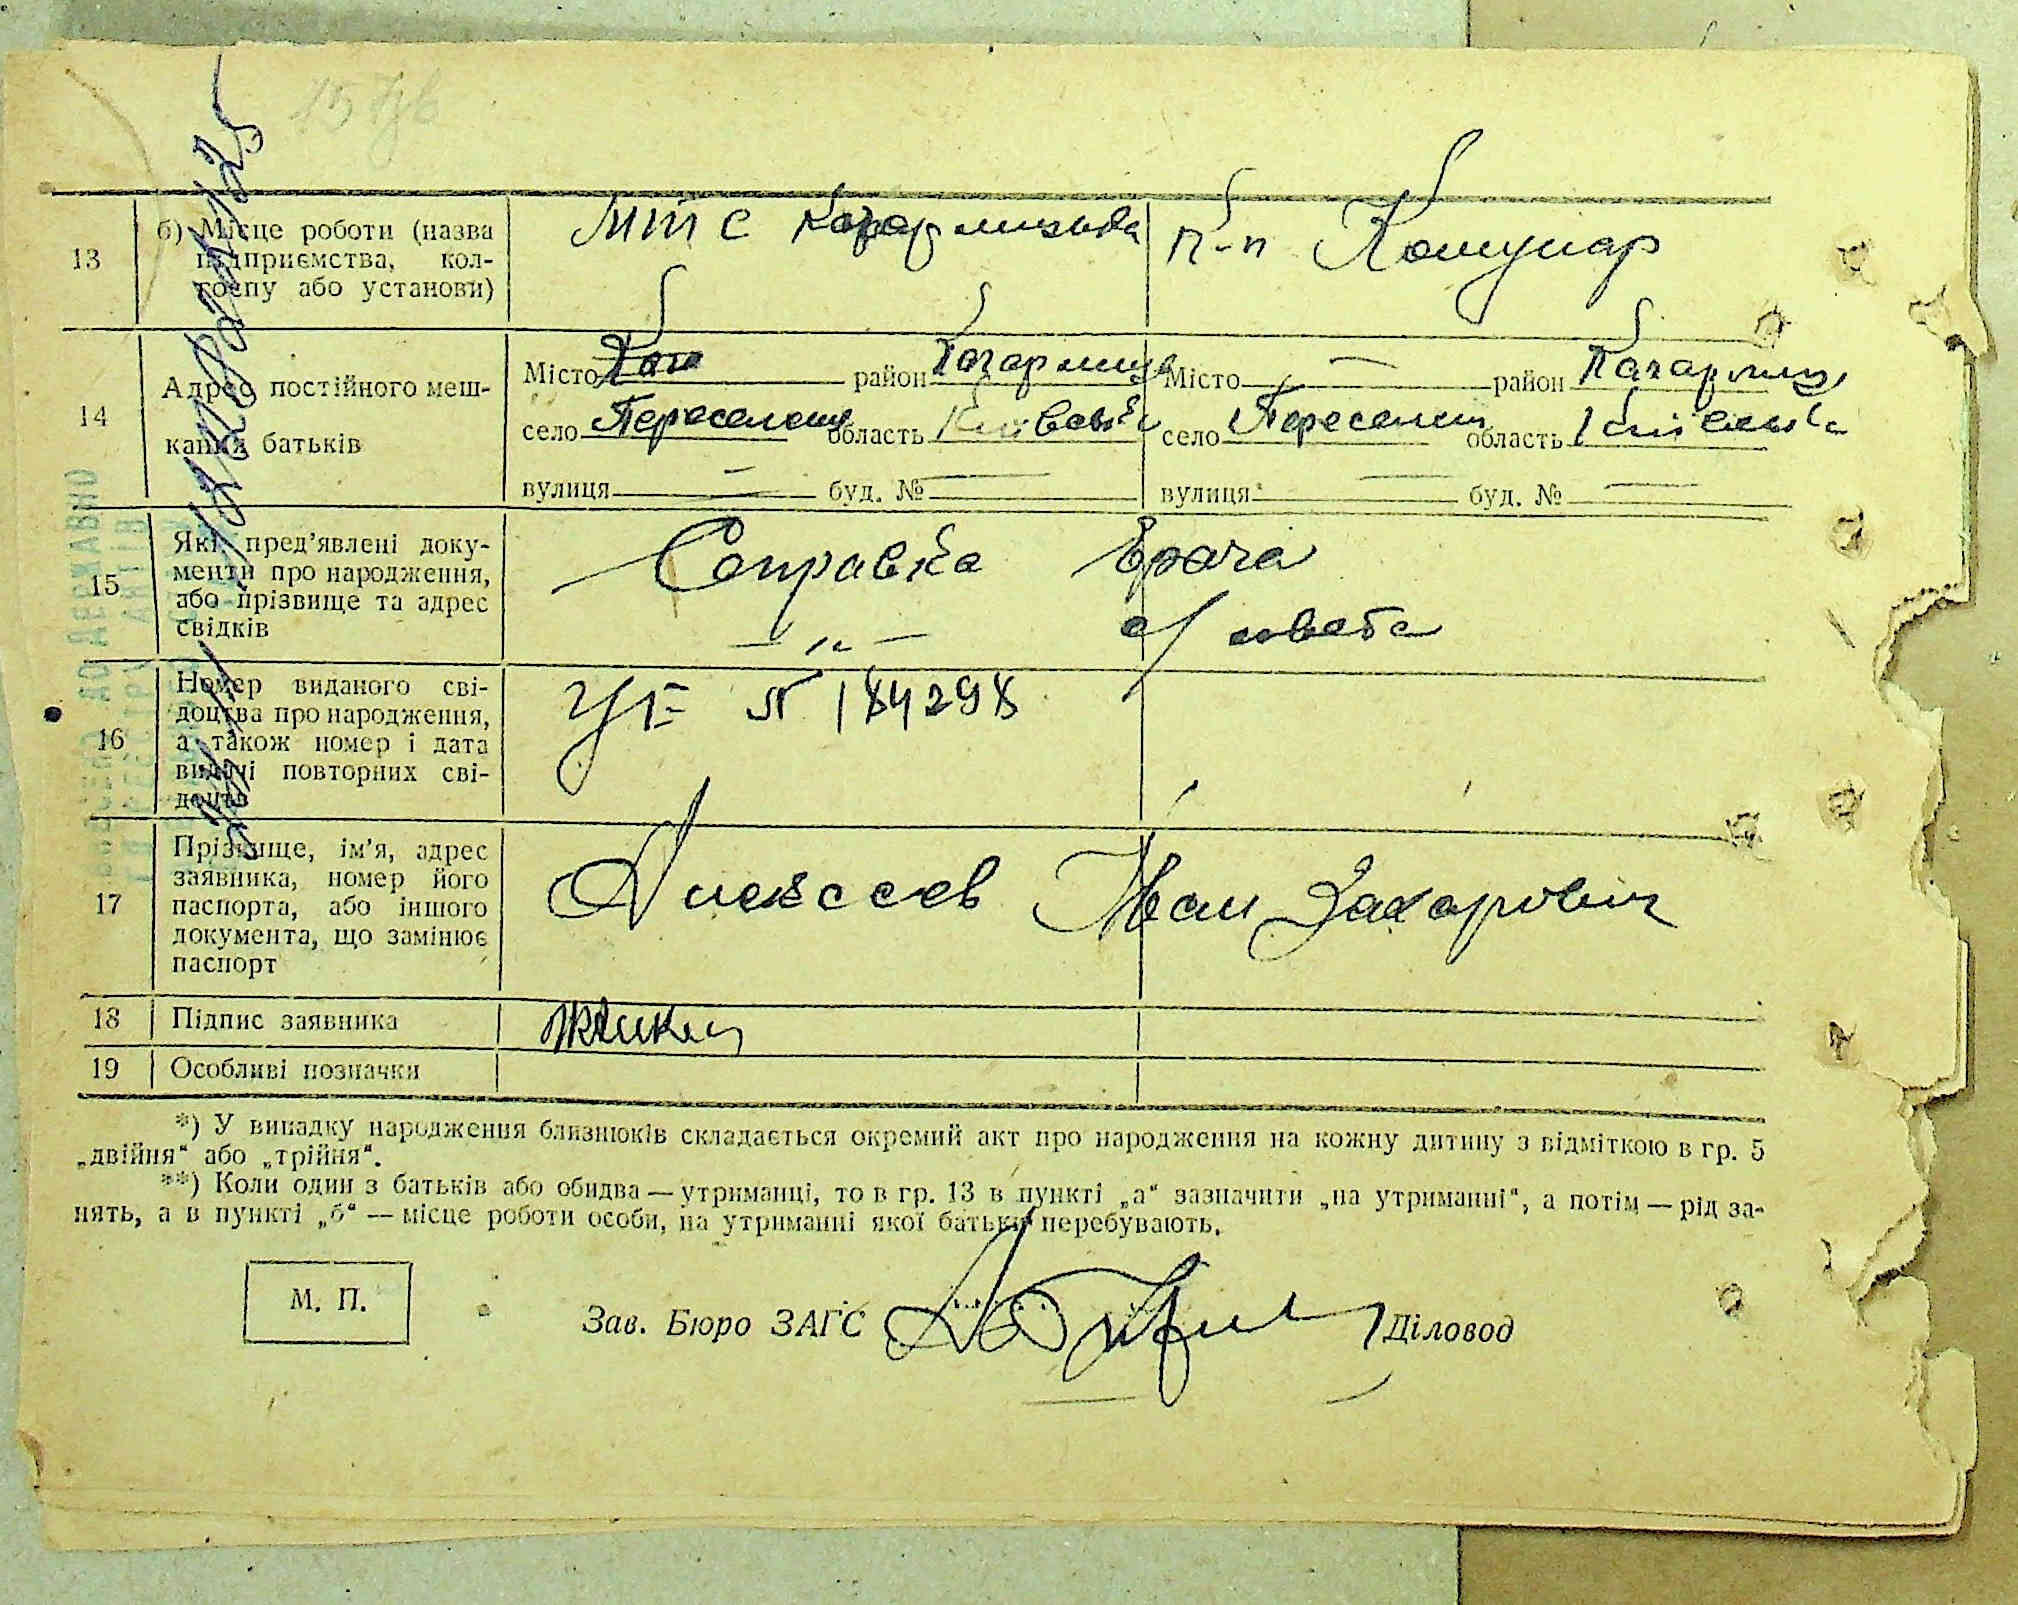 13
б) Місце роботи (назва
підприємства, кол-
госпу або установи)
МТС Кагарлицька
к-п Комунар
14
Адрес постійного меш-
кання батьків
Місто район Кагарлиц
село Переселення область Київська
вулиця — буд. № —
Місто — район Кагарлиц
село Переселен область Київська
вулиця — буд. № —
15
Які пред'явлені доку-
менти про народження,
або прізвище та адрес
свідків
Соправка врача
— „ — с/совета
16
Номер виданого сві-
доцтва про народження,
а також номер і дата
видачі повторних сві-
доцтв
№ 184298
17
Прізвище, ім'я, адрес
заявника, номер його
паспорта, або іншого
документа, що замінює
паспорт
Алексеев Иван Захарович
18
Підпис заявника
19
Особливі позначки
*) У випадку народження близнюків складається окремий акт про народження на кожну дитину з відміткою в гр. 5
„двійня“ або „трійня“.
**) Коли один з батьків або обидва — утриманці, то в гр. 13 в пункті „а“ зазначити „на утриманні“, а потім — рід за-
нять, а в пункті „б“ — місце роботи особи, на утриманні якої батьки перебувають.
М. П.
Зав. Бюро ЗАГС
Діловод